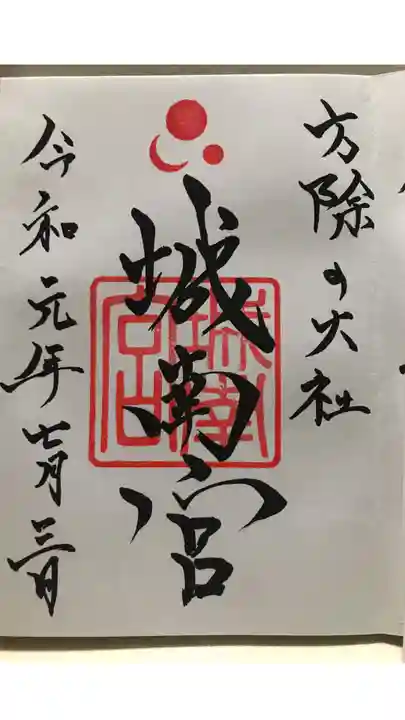 方除の大社
城南宮
令和元年七月三日